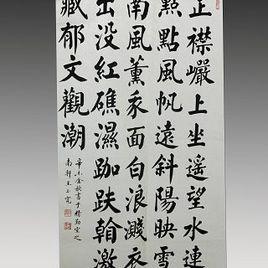 正襟巖上坐遥望水連
點點風帆遠斜陽映雪
南風薰来面白浪濺衣
出没紅礁濕跏趺翰激
藏郁文觀潮
辛未金秋書于室之
南軒王玉寬